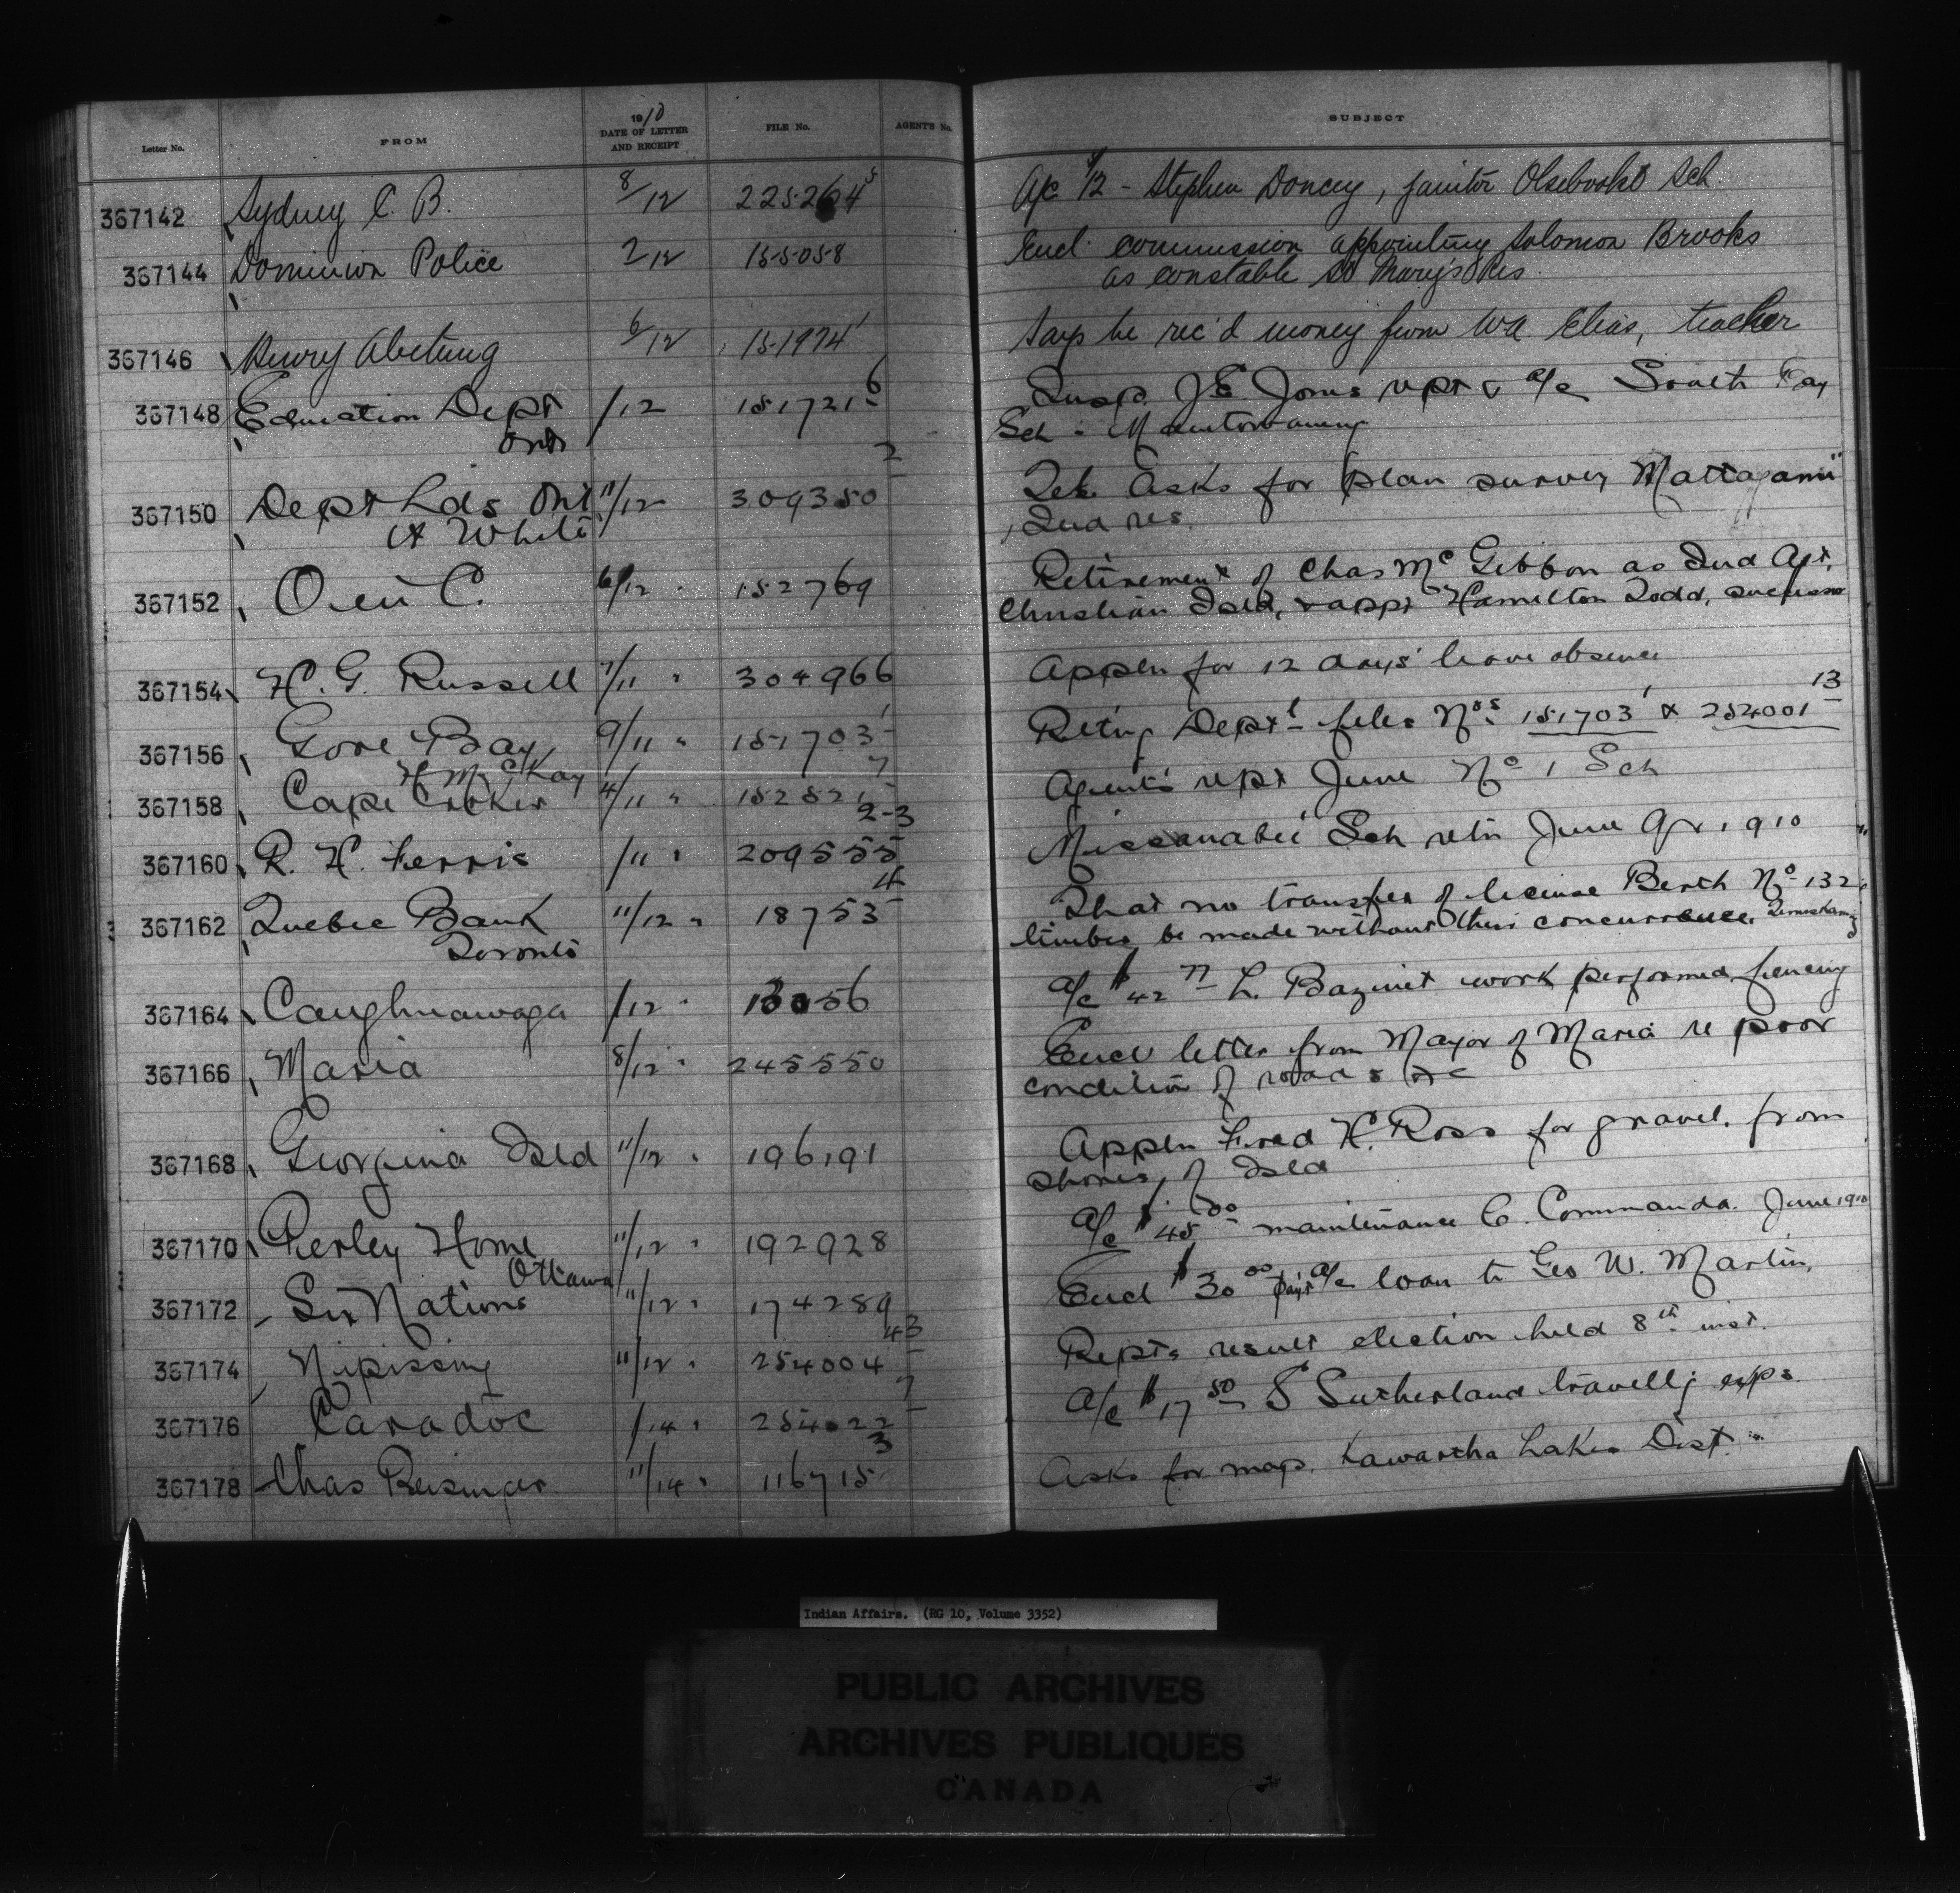 Letter No. FROM 1910 DATE OF LETTER AND RECEIPT FILE No. AGENT'S No. SUBJECT
367142 Sydney C. B. 8/12 225264-5 A/c $12 - Stephen Doncey, janitor Sch.
367144 Dominion Police 2/12 155058 Encl. commission appointing Solomon Brooks
as constable St Mary's Res.
367146 Henry Abetung 6/12 151974-1 Says he rec'd money from Wa Elias, teacher
367148 Education Dept /12 151721-6 Insp. J E Jones rept & a/c South Bay
Ont Sch - Manitowaning
367150 Dept Lds Ont 11/12 309350-2 Tel. Asks for plan survey Mattagami
A White Ind res.
367152 O in C. 6/12 " 152769 Retirement of Chas McGibbon as Ind Agt.
Christian Isld, & appt Hamilton Todd, successor
367154 H. G. Russell 7/11 " 304966 Appln for 12 days' leave absence
367156 Gore Bay 9/11 " 151703-1 Retng Deptl files Nos 151703-1 & 254001-13
H McKay
367158 Cape Croker 4/11 " 152521-7 Agent's rept June No 1 Sch
367160 R. H. Ferris /11 " 209555 2-3 Missanabie Sch retn June Qr 1910
367162 Quebec Bank 11/12 " 18753-4 That no transfer of license Berth No 132
Toronto timber be made without their concurrence. Temiskaming
367164 Caughnawaga /12 " A/c $42 77 L. Bazinet work performed fencing
367166 Maria 8/12 " 245550 Encl letter from Mayor of Maria re poor
condition of roads &c
367168 Georgina Isld 11/12 " 196191 Appln Fred H. Ross for gravel from
shores of Isld
367170 Perley Home 11/12 " 192928 A/c $45 00 maintenance C. Commanda. June 1910
Ottawa
367172 Six Nations 11/12 " 174289 Encl $30 00 payt a/c loan to Geo W. Martin.
367174 Nipissing 11/12 " 254004-43 Repts result election held 8th inst.
367176 Caradoc /14 " 254022-7 A/c $17 50 S Sutherland travellg exps.
367178 Chas Beisinger 11/14 " 116715-3 Asks for map. Kawartha Lakes Dist.
Indian Affairs. (RG 10, Volume 3352)
PUBLIC ARCHIVES
ARCHIVES PUBLIQUES
CANADA